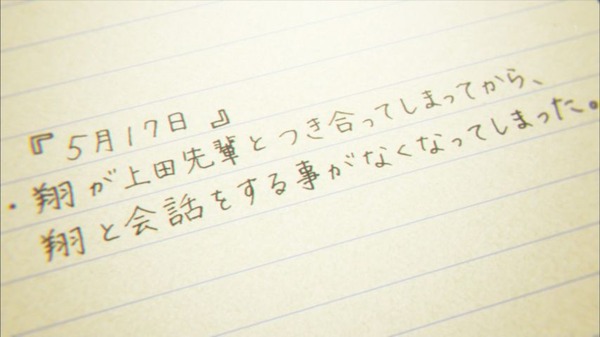 『5月17日』
・翔が上田先輩とつき合ってしまってから、
翔と会話をする事がなくなってしまった。